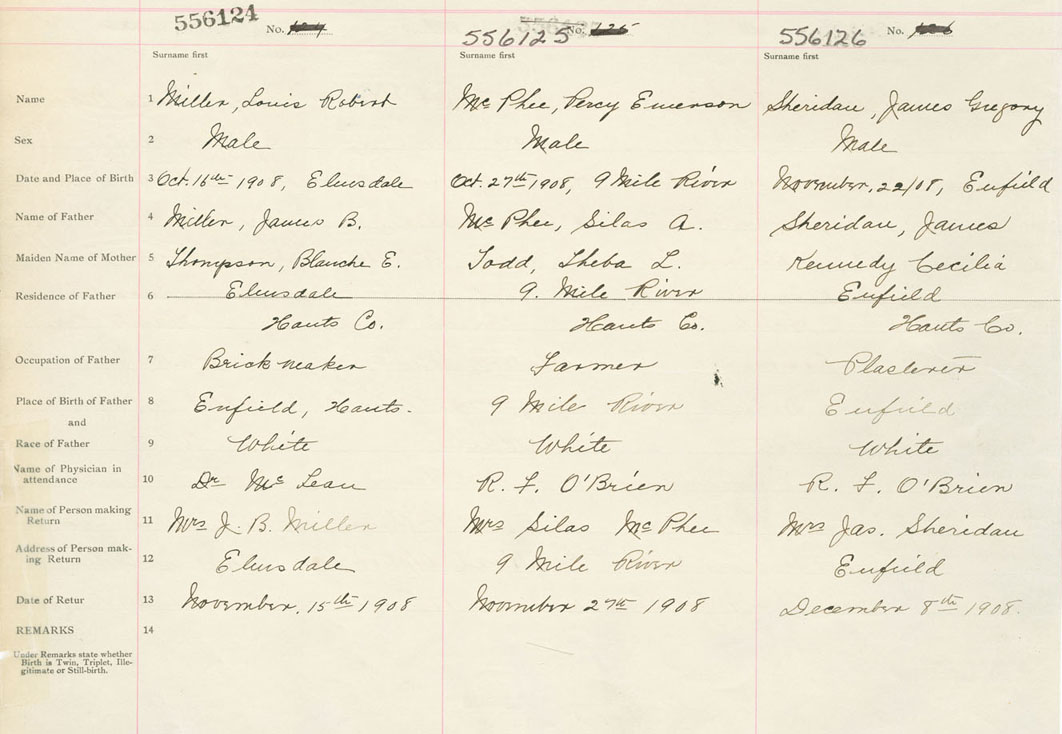 556124 No. 124 556125 No. 125 556126 No. 126
Surname first Surname first Surname first
Name 1 Miller, Louis Robert Mc Phee, Percy Emerson Sheridan, James Gregory
Sex 2 Male Male Male
Date and Place of Birth 3 Oct. 16th 1908, Elmsdale Oct. 27th 1908, 9 Mile River November, 22/08, Enfield
Name of Father 4 Miller, James B. Mc Phee, Silas A. Sheridan, James
Maiden Name of Mother 5 Thompson, Blanche E. Todd, Theba L. Kennedy Cecilia
Residence of Father 6 Elmsdale 9. Mile River Enfield
Hants Co. Hants Co. Hants Co.
Occupation of Father 7 Brick maker Farmer Plasterer
Place of Birth of Father 8 Enfield, Hants. 9 Mile River Enfield
and
Race of Father 9 White White White
Name of Physician in
attendance 10 Dr Mc Lean R. F. O'Brien R. F. O'Brien
Name of Person making
Return 11 Mrs J. B. Miller Mrs Silas Mc Phee Mrs Jas. Sheridan
Address of Person mak-
ing Return 12 Elmsdale 9 Mile River Enfield
Date of Retur 13 November, 15th 1908 November 27th 1908 December 8th 1908.
REMARKS 14
Under Remarks state whether
Birth is Twin, Triplet, Ille-
gitimate or Still-birth.